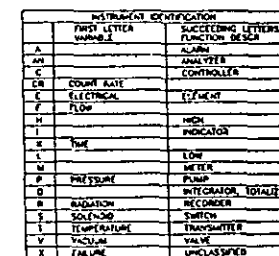 INSTRUMENT IDENTIFICATION
FIRST LETTER VARIABLE SUCCEEDING LETTERS FUNCTION DESCR
A ALARM
AN ANALYZER
C CONTROLLER
CR COUNT RATE
E ELECTRICAL ELEMENT
F FLOW
H HIGH
I INDICATOR
K TIME
L LOW
M METER
P PRESSURE PUMP
Q INTEGRATOR, TOTALIZ
R RADIATION RECORDER
S SOLENOID SWITCH
T TEMPERATURE TRANSMITTER
V VACUUM VALVE
X FAILURE UNCLASSIFIED